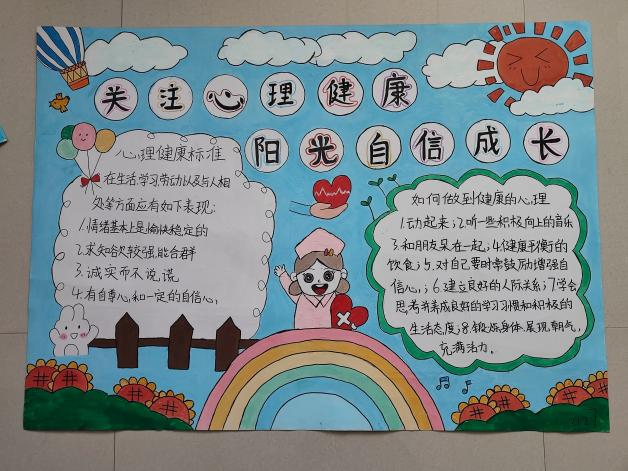 关注心理健康
阳光自信成长
心理健康标准
在生活、学习、劳动以及与人相
处等方面应有如下表现:
1.情绪基本上是愉快稳定的
2.求知欲较强,能合群
3.诚实而不说谎
4.有自尊心和一定的自信心,
如何做到健康的心理
1.动起来;2.听一些积极向上的音乐
3.和朋友呆在一起;4.健康平衡的
饮食;5.对自己要时常鼓励增强自
信心,;6建立良好的人际关系;7学会
思考并养成良好的学习习惯和积极的
生活态度;8.锻炼身体,展现朝气,
充满活力。